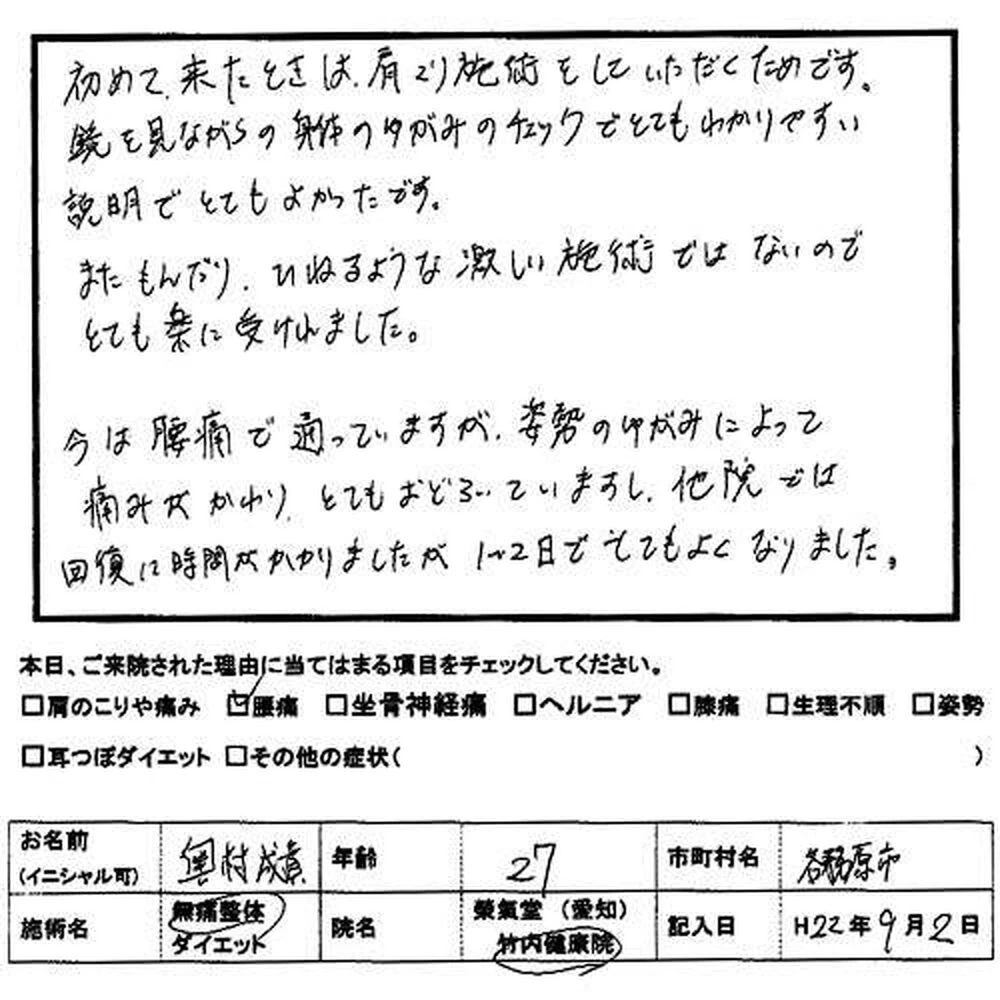 初めて、来たときは、肩こり施術をしていただくためです。
鏡を見ながらの身体のゆがみのチェックでとてもわかりやすい
説明でとてもよかったです。
またもんだり、ひねるような激しい施術ではないので
とても楽に受けれました。
今は腰痛で通っていますが、姿勢のゆがみによって
痛みがかわり、とてもおどろいていますし、他院では
回復に時間がかかりましたが1~2日でとてもよくなりました。
本日、ご来院された理由に当てはまる項目をチェックしてください。
□肩のこりや痛み ☑腰痛 □坐骨神経痛 □ヘルニア □膝痛 □生理不順 □姿勢
□耳つぼダイエット □その他の症状( )
お名前
(イニシャル可)
奥村成真
年齢
27
市町村名
各務原市
施術名
無痛整体
ダイエット
院名
榮氣堂 (愛知)
竹内健康院
記入日
H22年9月2日